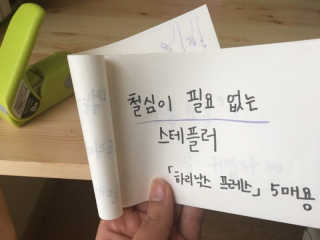 철심이 필요 없는
스테플러
「하리낙스 프레스」 5매용